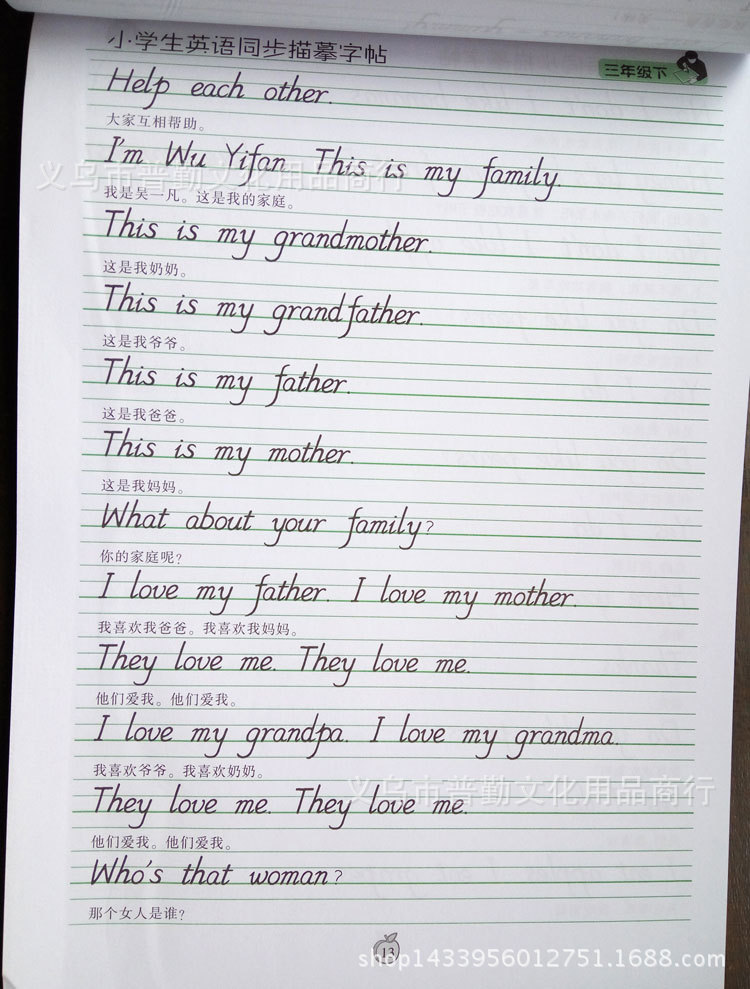 小学生英语同步描摹字帖
三年级下
Help each other.
大家互相帮助。
I'm Wu Yifan This is my family.
义乌市普勤文化用品商行
我是吴一凡。这是我的家庭。
This is my grandmother.
这是我奶奶。
This is my grandfather.
这是我爷爷。
This is my father.
这是我爸爸。
This is my mother.
这是我妈妈。
What about your family?
你的家庭呢?
I love my father. I love my mother.
我喜欢我爸爸。我喜欢我妈妈。
They love me. They love me.
他们爱我。他们爱我。
I love my grandpa. I love my grandma.
我喜欢爷爷。我喜欢奶奶。
义乌市普勤文化用品商行
They love me. They love me.
他们爱我。他们爱我。
Who's that woman?
那个女人是谁?
13
shop1433956012751.1688.com